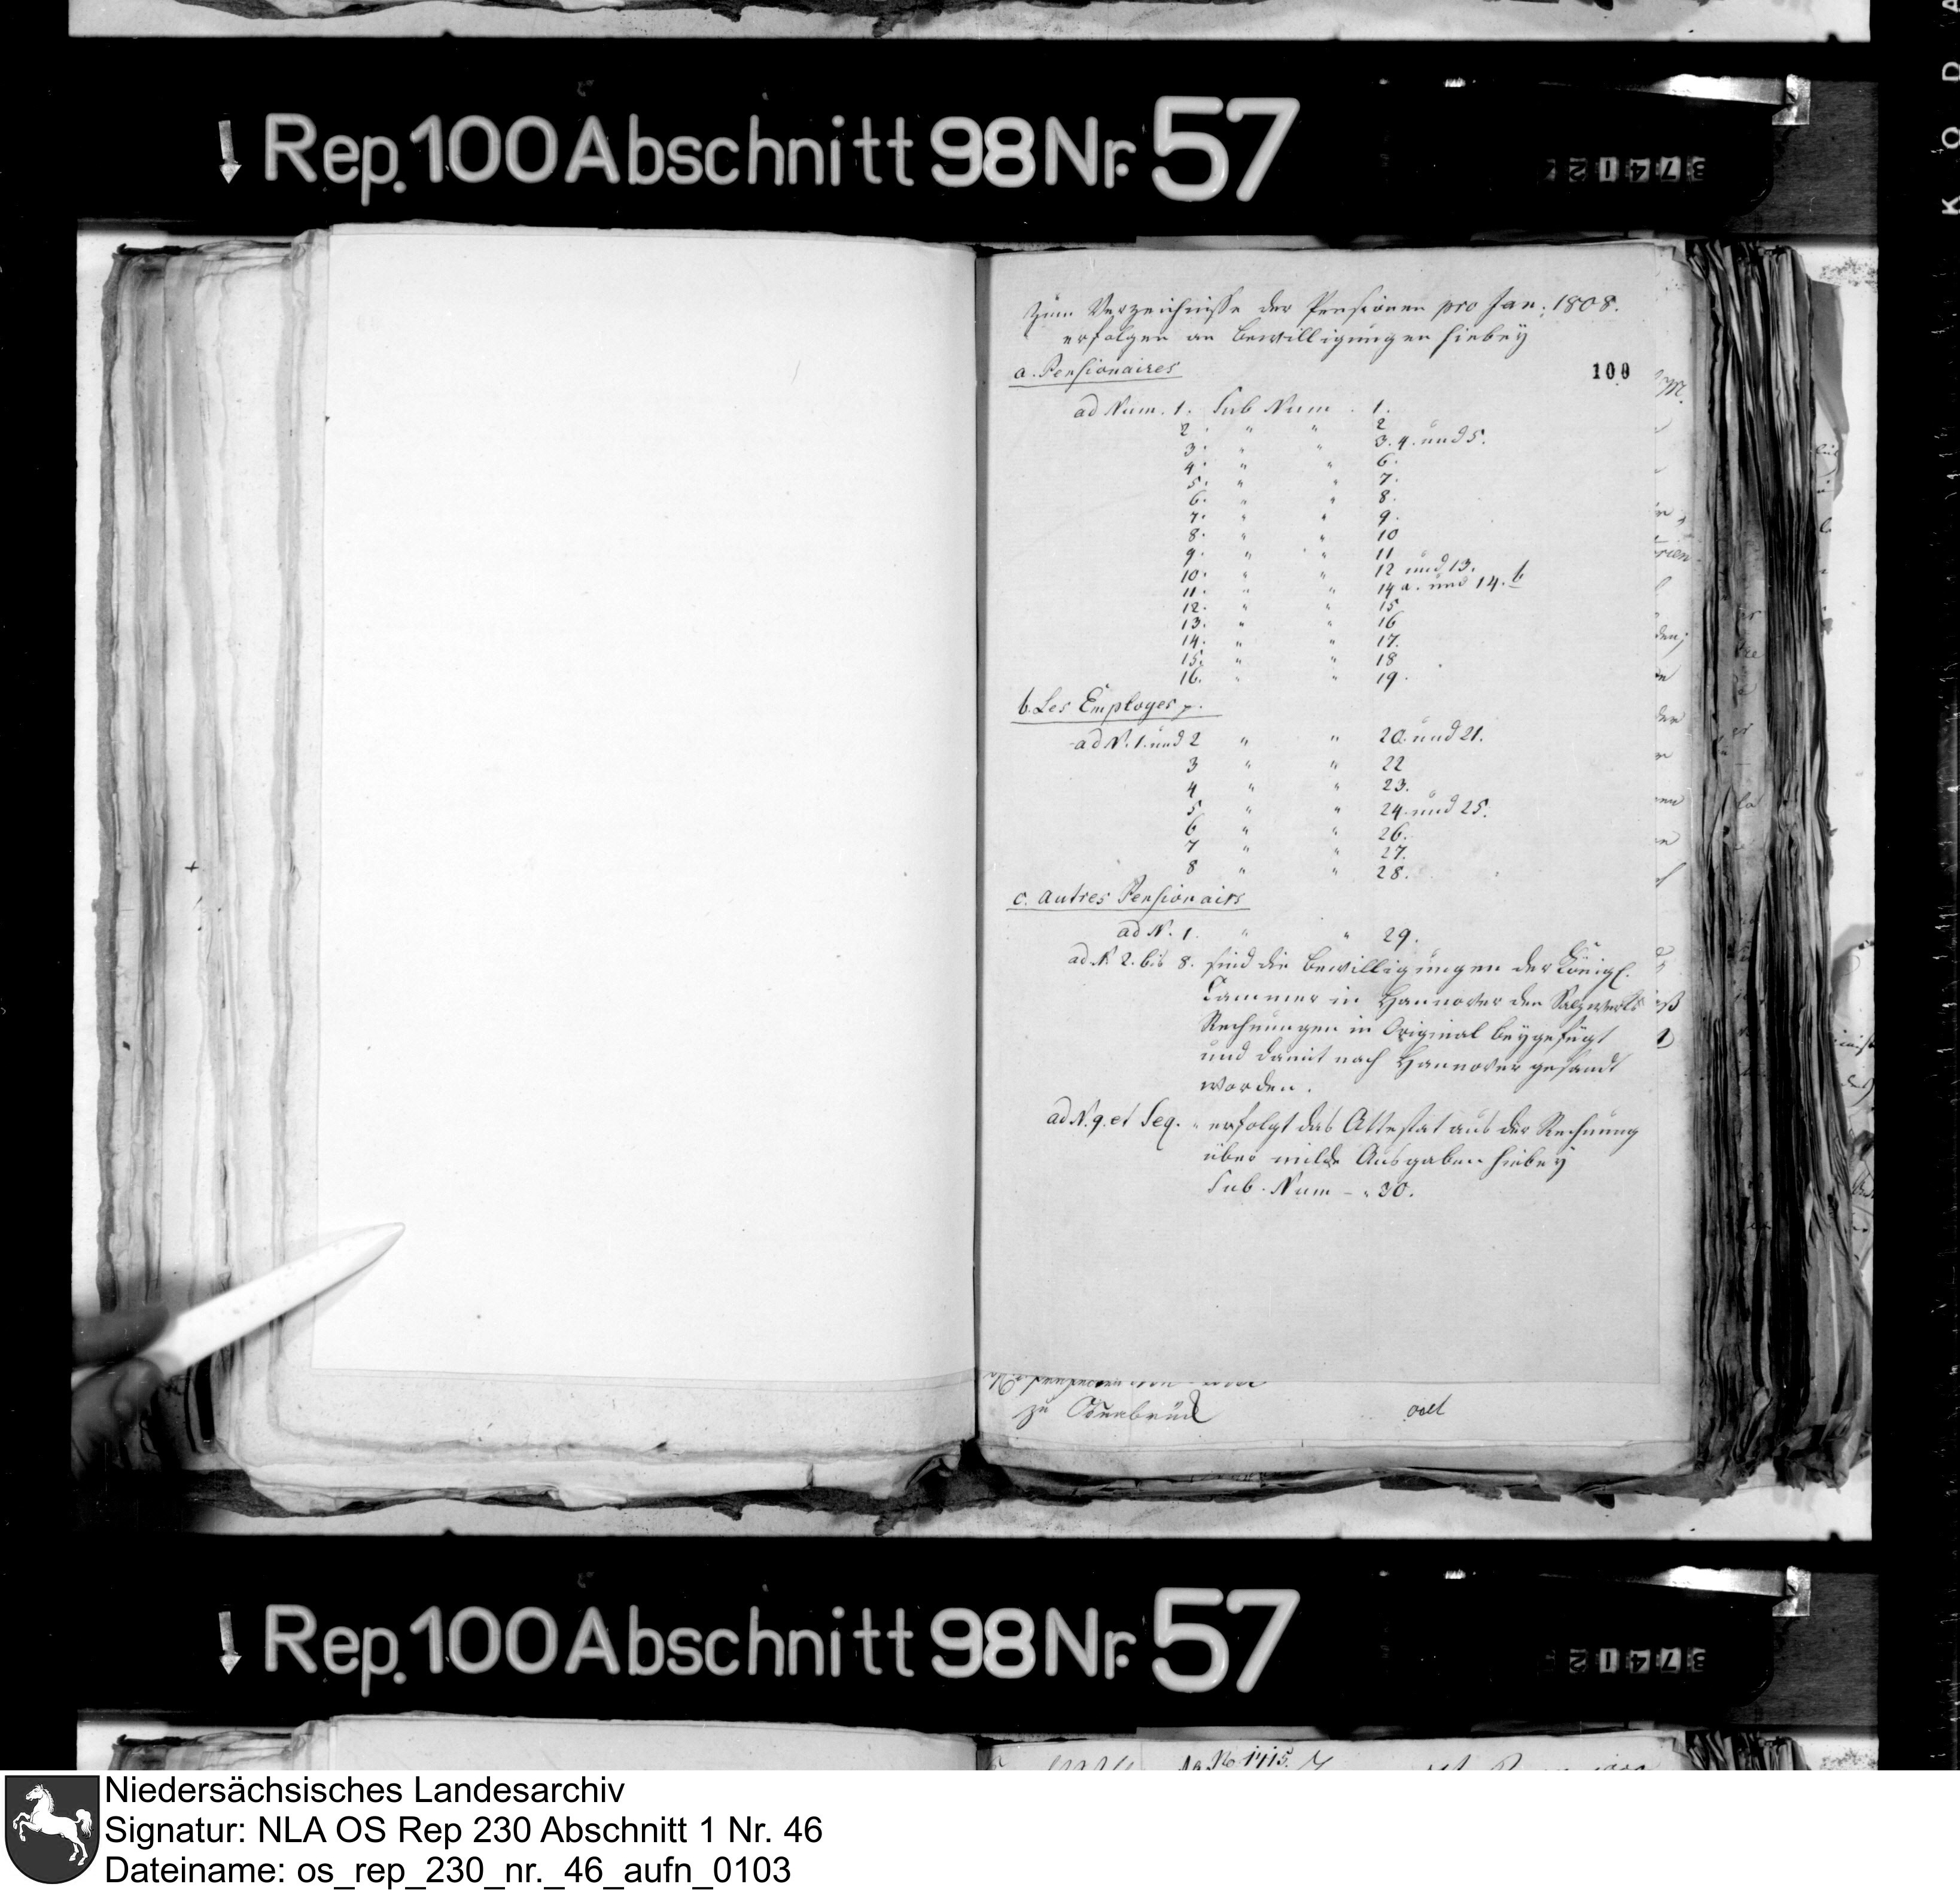 Rep. 100 Abschnitt 98 Nr. 57
37412
Zum Verzeichniße der Pensionen pro Jan: 1808.
erfolgen an Bewilligungen hiebey
a. Pensionaires
100
ad Num. 1. Sub Num. 1.
2. " " 2
3. " " 3. 4. und 5.
4. " " 6.
5. " " 7.
6. " " 8.
7. " " 9.
8. " " 10
9. " " 11
10. " " 12 und 13.
11. " " 14 a. und 14. b
12. " " 15
13. " " 16
14. " " 17.
15. " " 18
16. " " 19.
b. Les Employes p.
ad N. 1. und 2 " " 20. und 21.
3 " " 22
4 " " 23.
5 " " 24. und 25.
6 " " 26.
7 " " 27.
8 " " 28.
c. autres Pensionairs
ad N. 1. " " 29.
ad N. 2. bis 8. sind die Bewilligungen der Königl.
Cammer in Hannover den Salzwerks
Rechnungen in Original beygefügt
und damit nach Hannover gesandt
worden.
ad N. 9. et Seq. " erfolgt das Attestat aus der Rechnung
über milde Ausgaben hiebey
Sub. Num - " 30.
zu Osnabrück
Rep. 100 Abschnitt 98 Nr. 57
37412
No 1415.
Niedersächsisches Landesarchiv
Signatur: NLA OS Rep 230 Abschnitt 1 Nr. 46
Dateiname: os_rep_230_nr._46_aufn_0103